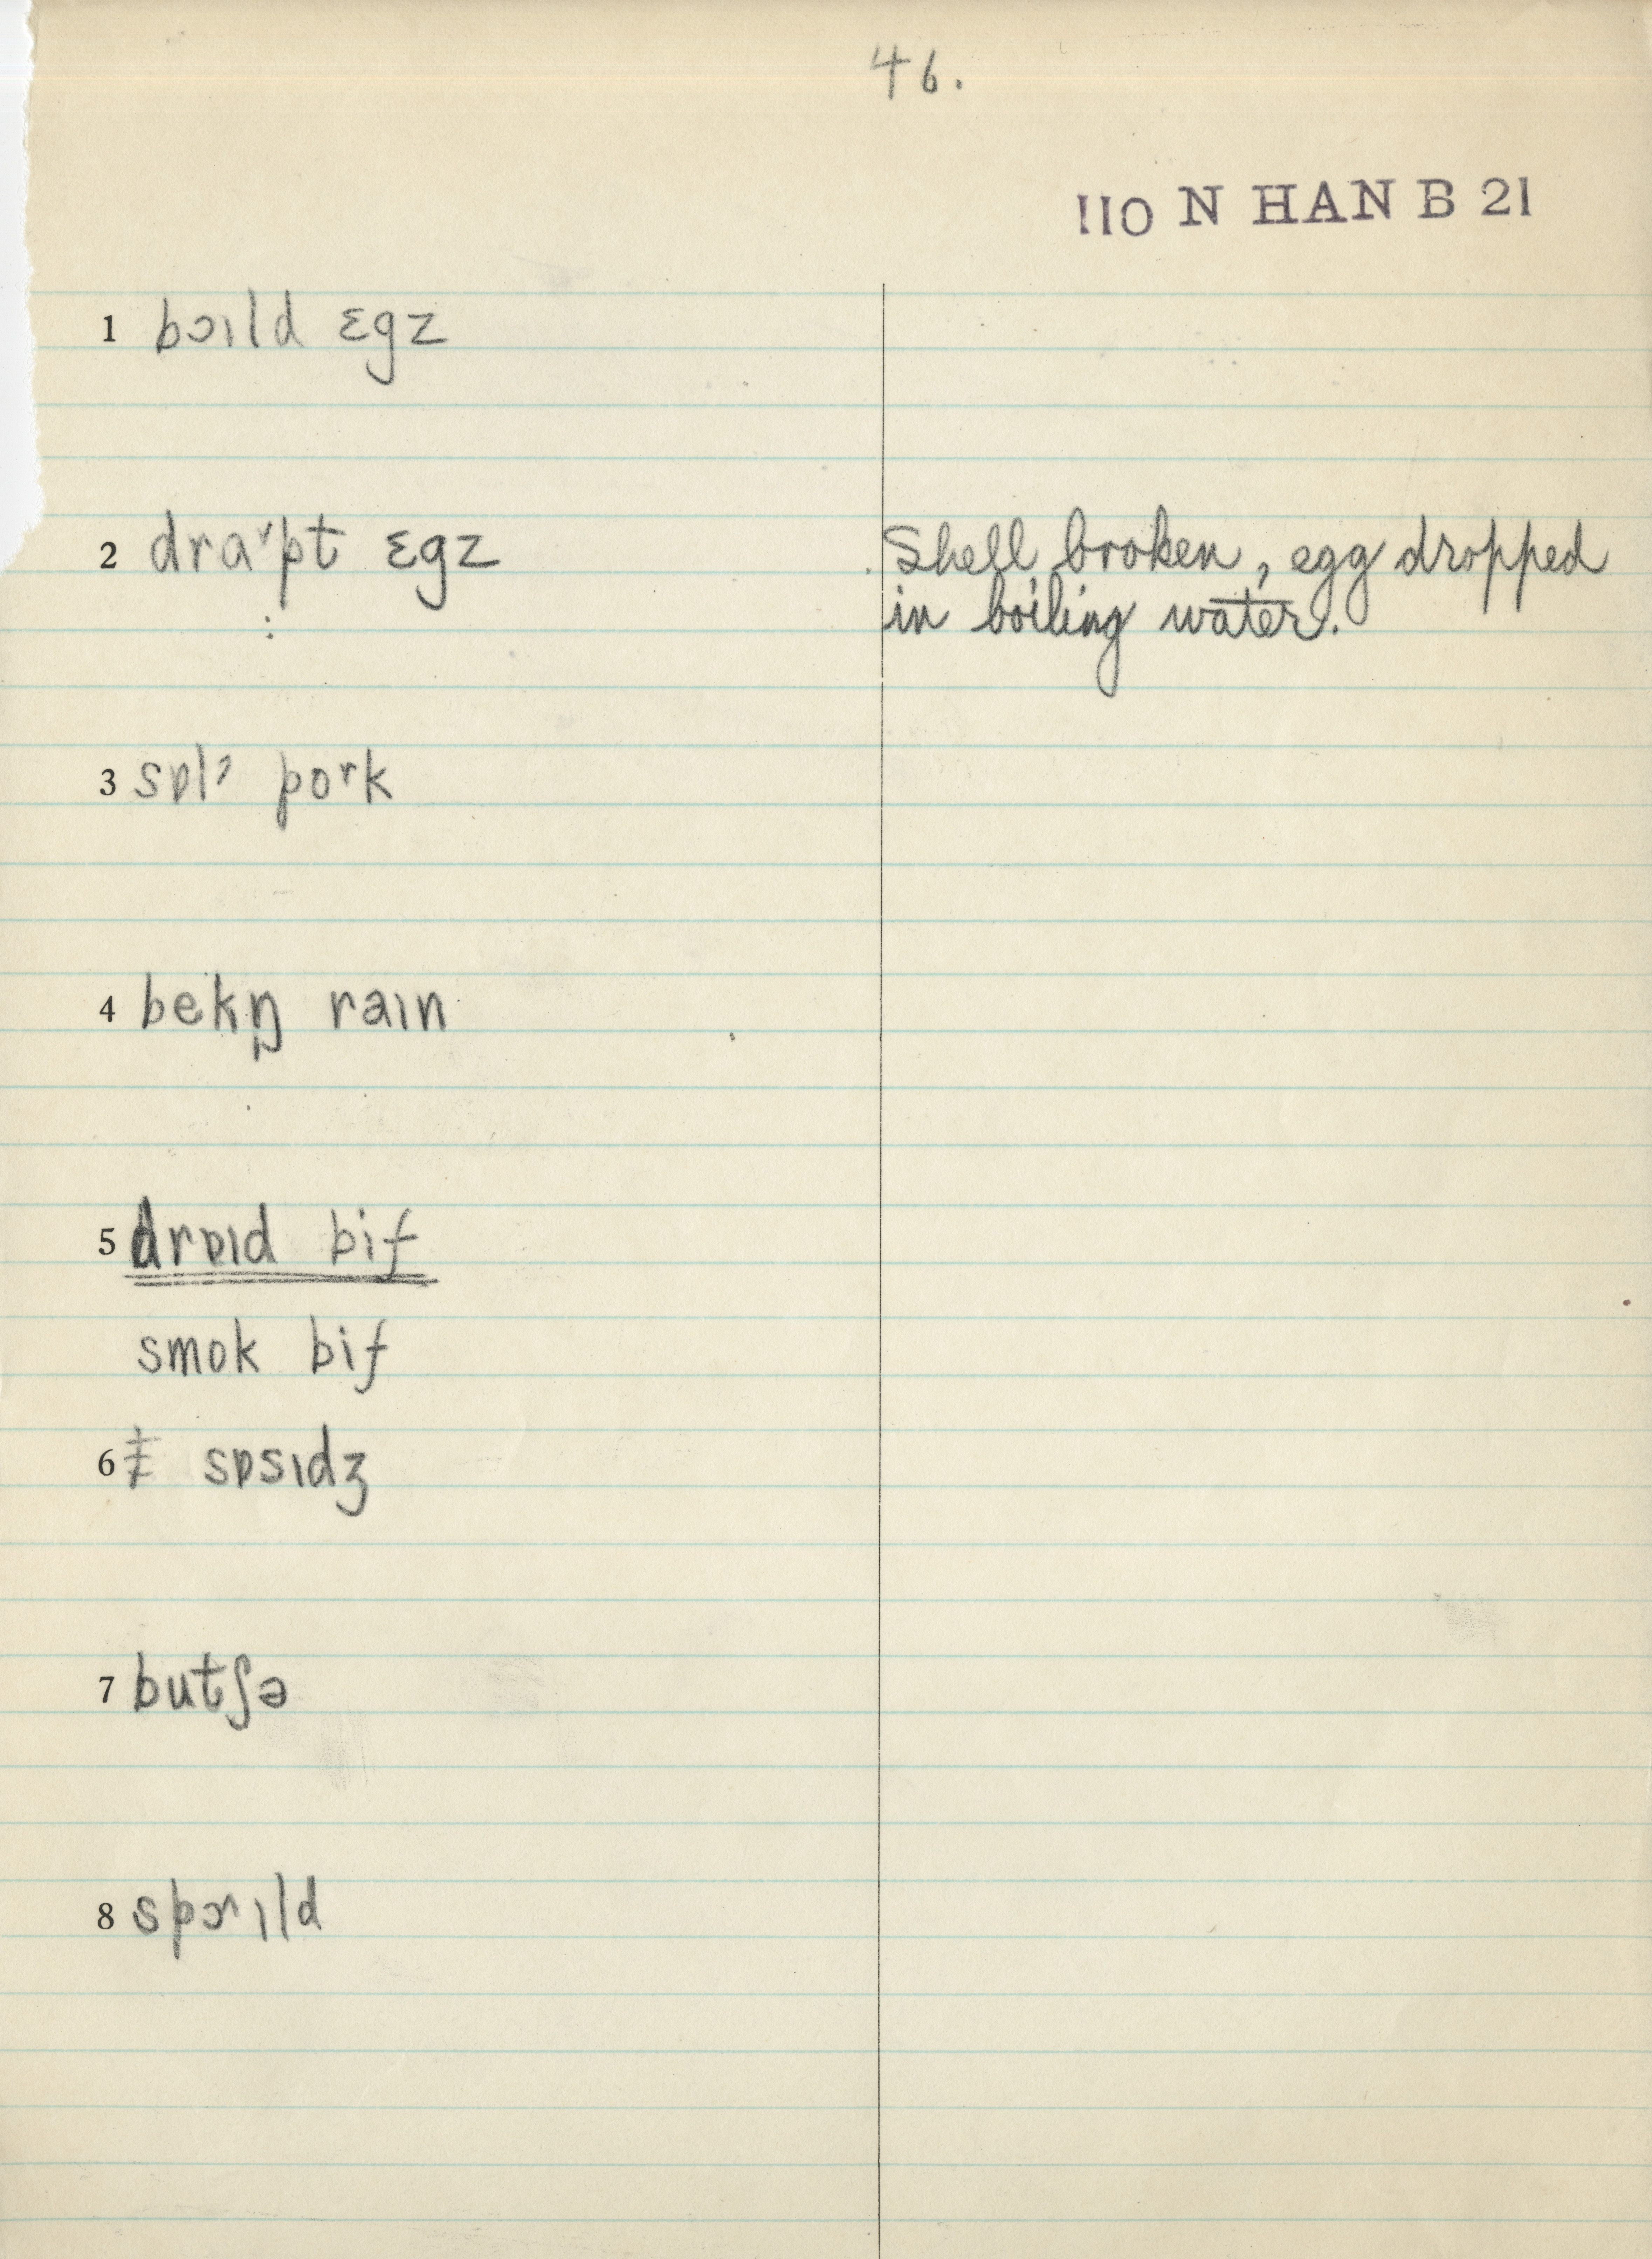 46.
110 N HAN B 21
1 bɔıld ɛgz
2 draˠpt ɛgz
Shell broken, egg dropped
in boiling water.
3 sɒlˀ poʳk
4 bekŋ̩ raın
5 drɒıd bif
smok bif
6 ‡ sɒsıdʒ
7 butʃə
8 spɔ˞ıld